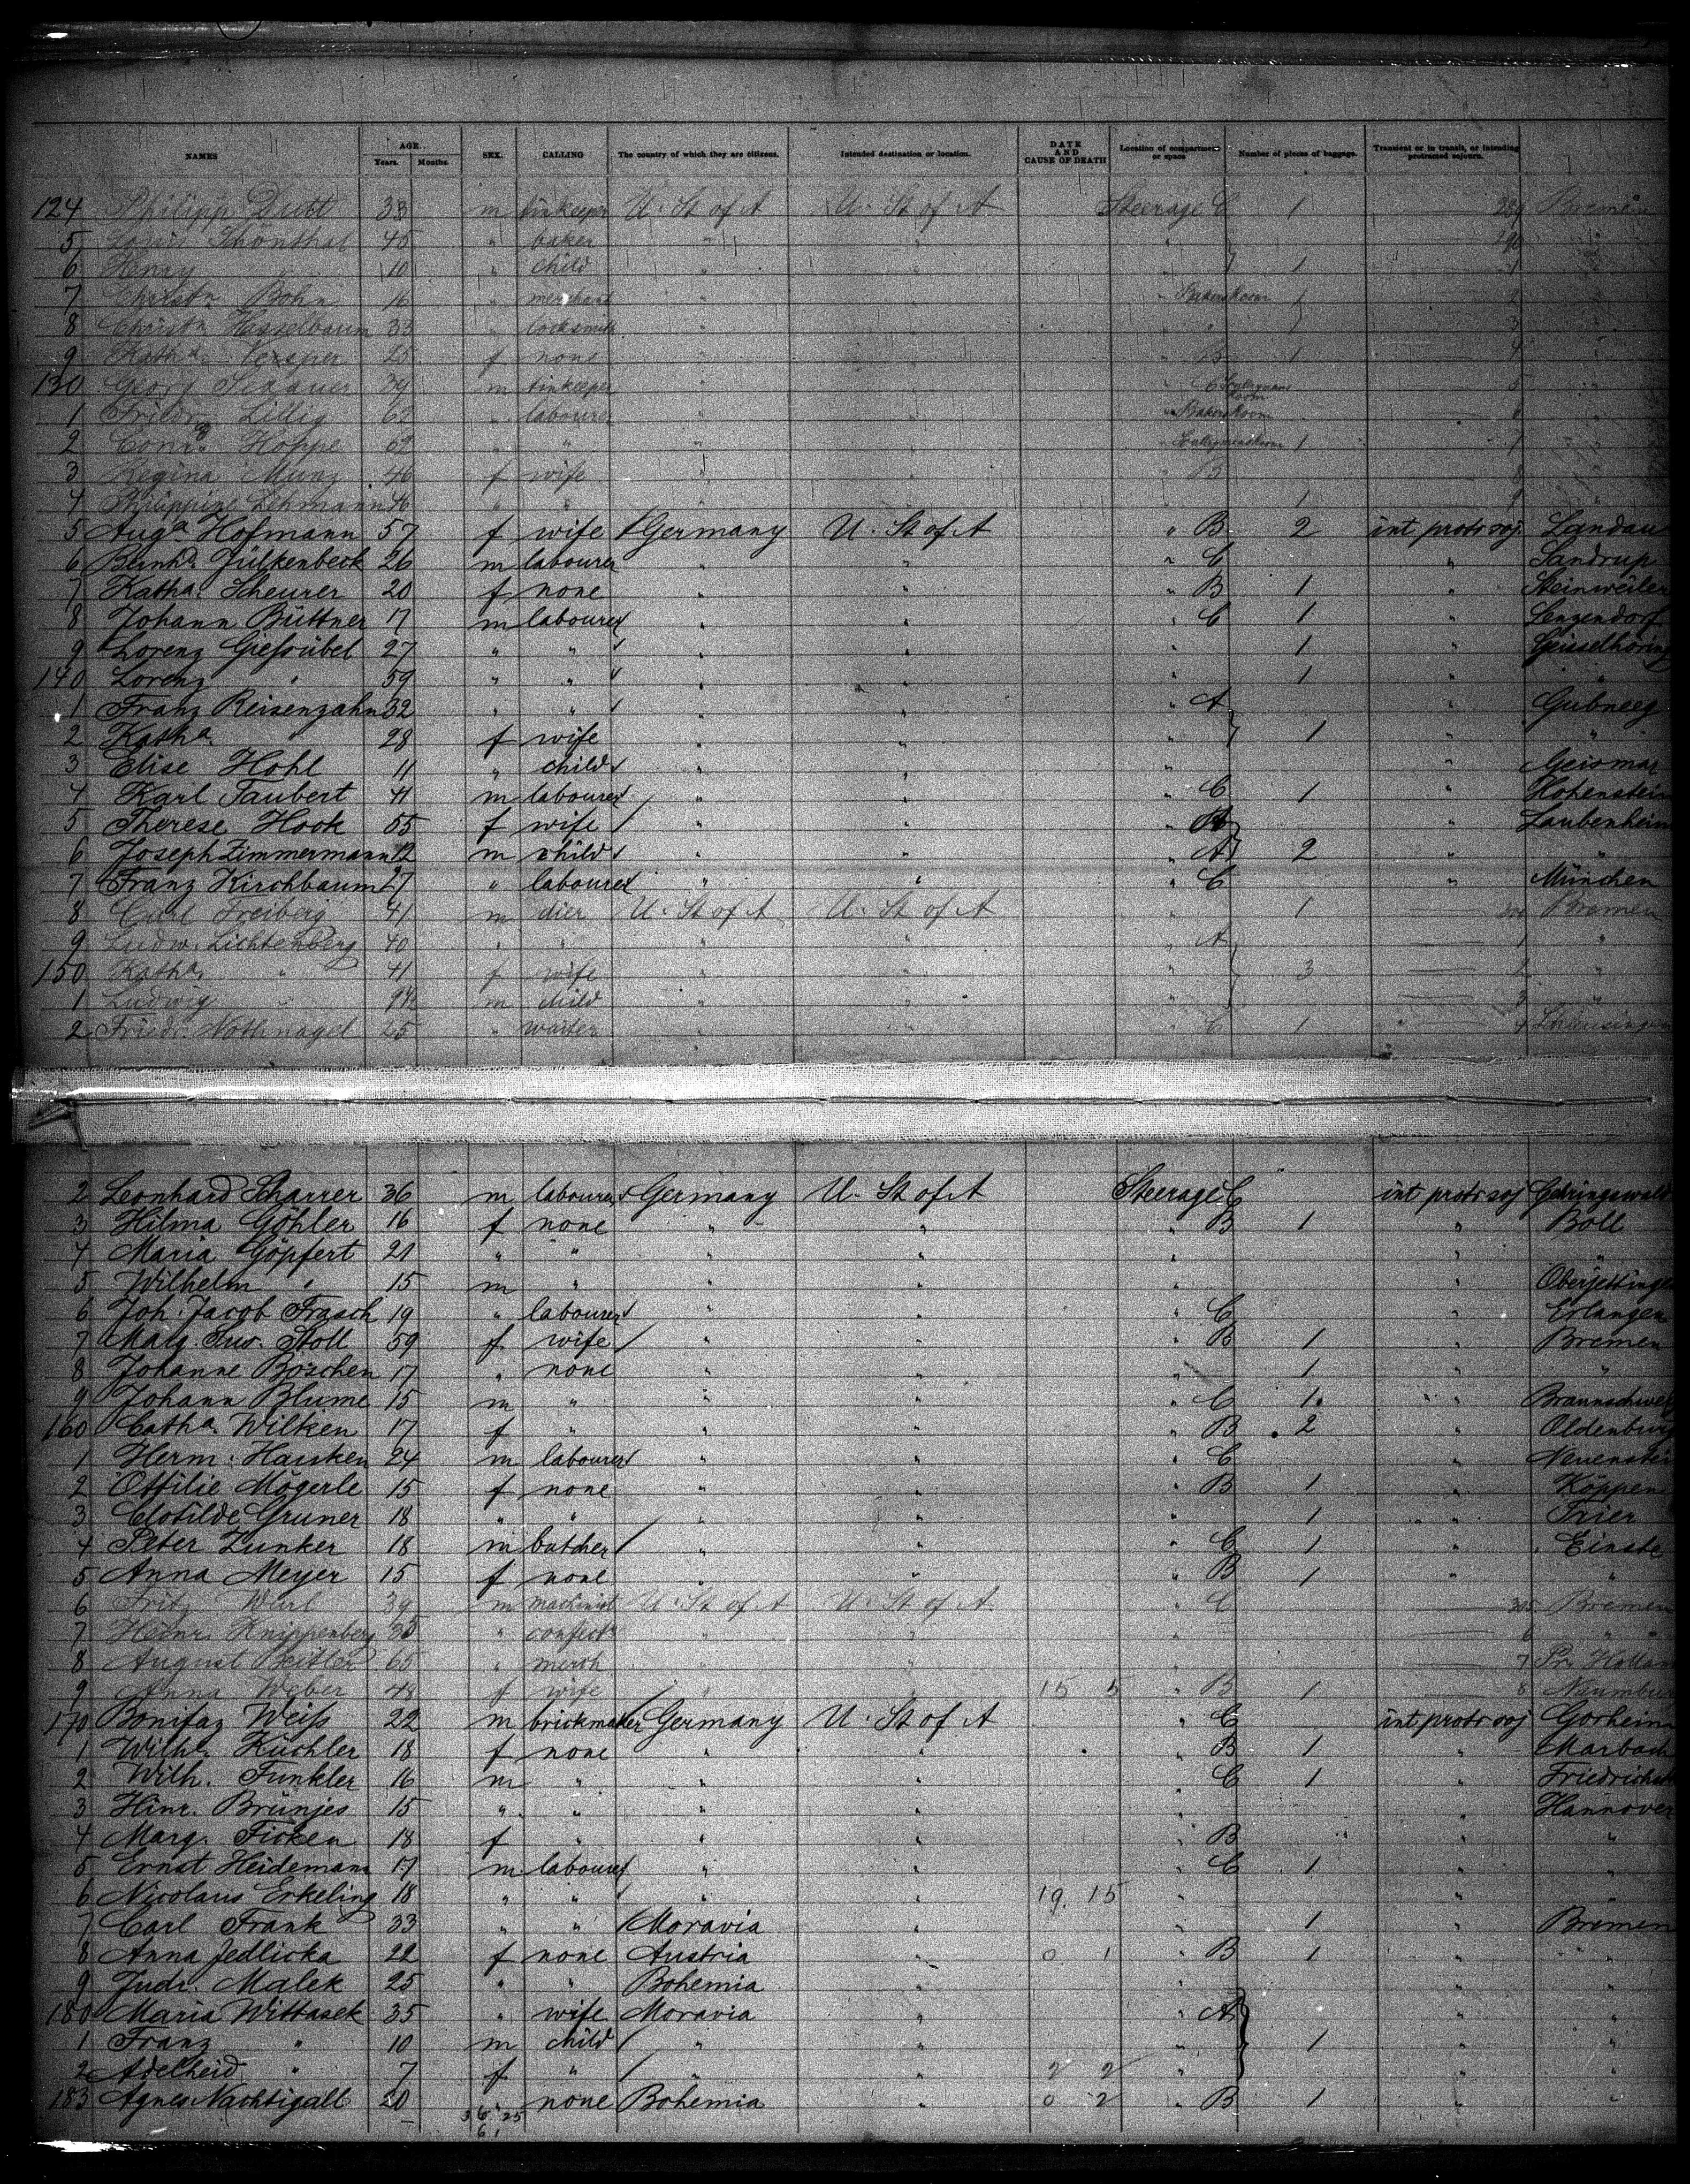 NAMES AGE. Years. Months. SEX. CALLING The country of which they are citizens. Intended destination or location. DATE AND CAUSE OF DEATH Location of compartment or space Number of pieces of baggage. Transient or in transit, or intending protracted sojourn.
124 Philipp Dutt 33 m U. St of A U. St of A Steerage C 1 Bremen
5 Louis Schönthal 45 " baker " " "
6 Henry " 10 " child " " " 1 "
7 Christn Bohn 16 " merchand " " " Bakers Room 1 2 "
8 Christn Hesselbaum 33 " locksmith " " " 3 "
9 Katha. Vesper 25 f none " " " B 1 4 "
130 Georg 39 m " " " C 5 "
1 Friedr. Lillig 62 " labourer " " " Bakers Room 6 "
2 Conrd Hoppe " " " " " 1 7 "
3 Regina Munz 46 f wife " " " B 8 "
4 Philippine Lehmann 46 " " " " " 1 9 "
5 Auga Hofmann 57 f wife Germany U. St of A " B 2 int protr soj. Landau
6 Bernhd. Jülkenbeck 26 m labourer " " " C " Sandrup
7 Katha. Scheurer 20 f none " " " B 1 " Steinweiler
8 Johann Büttner 17 m labourer " " " C 1 " Lenzendorf
9 Lorenz Gießübel 27 " " " " " 1 " Geisselhöring
140 Lorenz " 59 " " " " " 1 " "
1 Franz Reisenzahn 32 " " " " " A "
2 Katha. " 28 f wife " " " 1 " "
3 Elise Hohl 11 " child " " " " Geismar
4 Karl Taubert 41 m labourer " " " C 1 " Hohenstein
5 Therese Hook 55 f wife " " " " Laubenheim
6 Joseph Zimmermann 12 m child " " " A 2 " "
7 Franz Kirchbaum 27 " labourer " " " C " München
8 Carl Freiberg 41 m dier U. St of A U. St of A " 1 300 Bremen
9 Ludw. Lichtenberg 40 " " " " " A 1 "
150 Katha. " 41 f wife " " " 3 2 "
1 Ludwig " m child " " " 3 "
2 Friedr. Nothnagel 25 " waiter " " " C 1 4
2 Leonhard Scharrer 36 m labourer Germany U. St of A Steerage C int protr soj
3 Hilma Göhler 16 f none " " " B 1 " Boll
4 Maria Göpfert 21 " " " " " " "
5 Wilhelm " 15 m " " " " " Oberjettingen
6 Joh. Jacob Frasch 19 " labourer " " " C " Erlangen
7 Marg. Stoll 59 f wife " " " B 1 " Bremen
8 Johanne Böschen 17 " none " " " 1 " "
9 Johann Blume 15 m " " " " C 1 " Braunschweig
160 Catha. Wilken 17 f " " " " B 2 " Oldenburg
1 Herm. Hausken 24 m labourer " " " C " Neuenstein
2 Ottilie Mögerle 15 f none " " " B 1 " Köppen
3 Clotilde Gruner 18 " " " " " 1 " Trier
4 Peter Zunker 18 m butcher " " " C 1 " Einste
5 Anna Meyer 15 f none " " " B 1 " "
6 Fritz 39 m machinist U. St of A U. St of A " C 305 Bremen
7 Heinr. Knippenberg 35 " " " " 6 "
8 August Beitler 65 " merch " " " 7 Pr. Holland
9 Anna Weber 48 f wife " " 15 5 " B 1 8 Naumburg
170 Bonifaz Weiß 22 m brickmaker Germany U. St of A " C int protr soj Gorheim
1 Wilhe. Küchler 18 f none " " " B 1 " Marbach
2 Wilh. Funkler 16 m " " " " C 1 " Friedrichsth
3 Hinr. Brünjes 15 " " " " " " Hannover
4 Marg. Ficken 18 f " " " " B " "
5 Ernst Heidemann 17 m labourer " " " C 1 " "
6 Nicolaus Erkeling 18 " " " " 19. 15 " " "
7 Carl Frank 33 " " Moravia " " 1 " Bremen
8 Anna Jedlicka 22 f none Austria " 0 1 " B 1 " "
9 Judr. Malek 25 " " Bohemia " " " "
180 Maria Wittasek 35 " wife Moravia " " A " "
1 Franz " 10 m child " " " 1 " "
2 Adelheid " 7 f " " " 2 2 " " "
183 Agnes Nachtigall 20 none Bohemia " 0 2 " B 1 " "